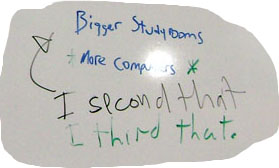 Bigger Studyrooms
+ More computers *
I second that
I third that.